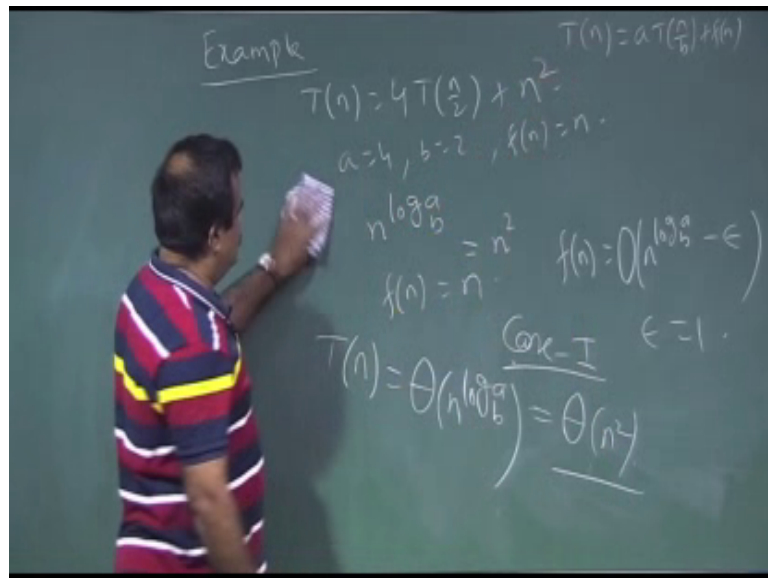 Example
T(n) = a T(n/b) + f(n)
T(n) = 4 T(n/2) + n²
a = 4, b = 2, f(n) = n.
n^log_b^a = n²
f(n) = n
f(n) = O(n^log_b^a - ϵ)
Case - I
ϵ = 1.
T(n) = θ(n^log_b^a) = θ(n²)